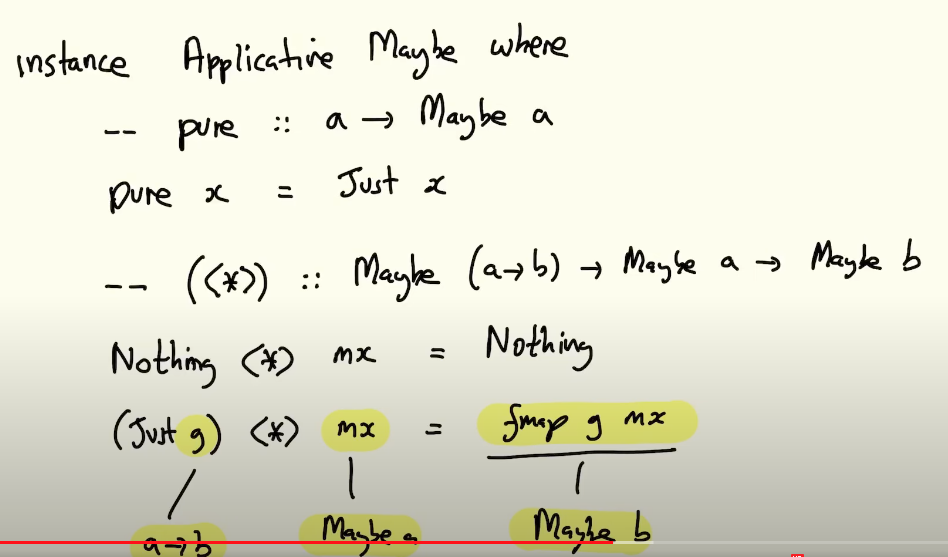 instance Applicative Maybe where
-- pure :: a → Maybe a
pure x = Just x
-- (<*>) :: Maybe (a→b) → Maybe a → Maybe b
Nothing <*> mx = Nothing
(Just g) <*> mx = fmap g mx
a→b Maybe a Maybe b